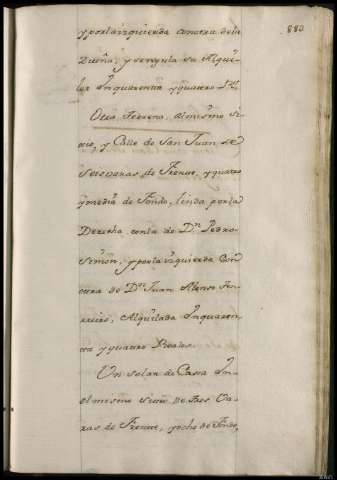 880
y por la izquierda con otra de la
Dueña, y se regula su Alqui-
ler In quarenta y quatro Rs
Otra Terrena al mismo Si-
tio, y Calle de San Juan, de
seis varas de Frente, y quatro
y media de Fondo, linda por la
Derecha con la de Dn Pedro
Simon, y por la izquierda Con
otra de Dn Juan Alonso
Alquilada In quaren-
ta y quatro Reales.
Un solar de Casa In
el mismo Sitio de tres Va-
ras de Frente, y ocho de Fondo,